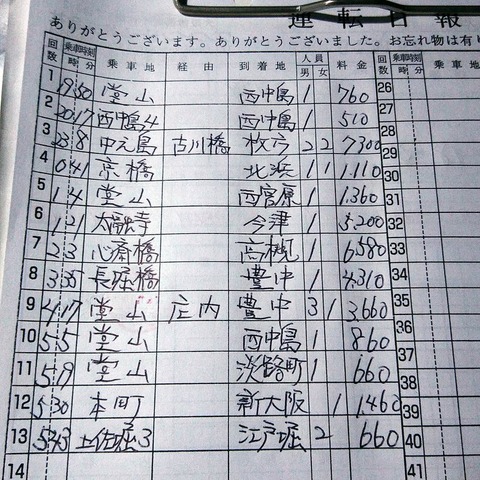 運転日報
ありがとうございます。ありがとうございました。お忘れ物は有り
回数 乗車時刻 時 分 乗車地 経由 到着地 人員 男 女 料金 回数 乗車時刻 時 分 乗車
1 19 50 堂山 西中島 1 760 26
2 20 17 西中島4 西中島 1 510 27
3 23 8 中之島 古川橋 枚方 2 2 7300 28
4 0 41 京橋 北浜 1 1 1,110 29
5 1 4 堂山 西宮原 1 1,360 30 31
6 1 21 今津 1 5,200 32
7 2 3 心斎橋 高槻 1 6,580 33
8 3 35 長堀橋 豊中 1 4,310 34
9 4 17 堂山 庄内 豊中 3 1 3,660 35
10 5 5 堂山 西中島 1 860 36 37
11 5 19 堂山 淡路町 1 660 38
12 5 30 本町 新大阪 1 1,460 39
13 5 43 土佐堀3 江戸堀 2 660 40
14 41